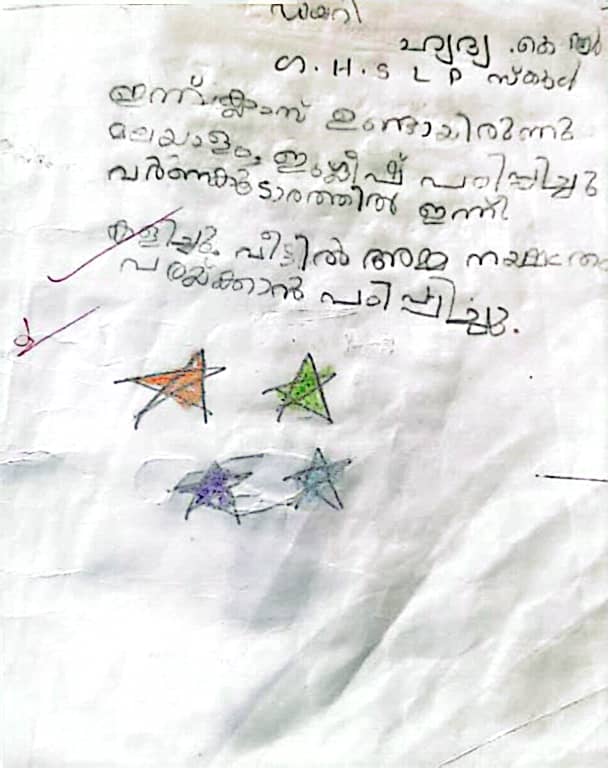 ഡയറി
ഹൃദ്യ .കെ ആർ
G.H.S L P സ്കൂൾ
ഇന്ന് ക്ലാസ് ഉണ്ടായിരുന്നു
മലയാളം, ഇംഗ്ലീഷ് പഠിപ്പിച്ചു
വർണകൂടാരത്തിൽ ഇന്ന്
കളിച്ചു. വീട്ടിൽ അമ്മ
പറയ്ക്കാൻ പഠിപ്പിച്ചു.